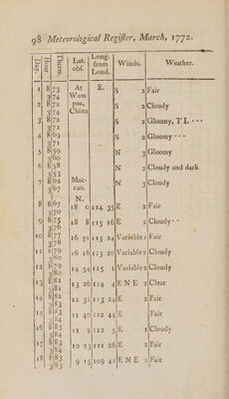 98 Meteorological Register, March, 1772.
Day. Hour. Therm. Lat. obs. Long. from Lond. Winds. Weather.
1 8 73 At Wampoa, China E. S 2 Fair
3 74
2 8 72 S 2 Cloudy
3 74
3 8 72 S 2 Gloomy, T L
3 72
4 8 69 S 2 Gloomy
3 71
5 8 59 N 3 Gloomy
3 60
6 8 58 N 2 Cloudy and dark
3 53
7 8 62 Maccao. N 3 Cloudy
3 67
N.
8 8 67 18 0 114 35 E 2 Fair
3 70
9 8 75 18 8 115 16 E 2 Cloudy
3 76
10 8 77 16 51 115 24 Variable 1 Fair
3 78
11 8 79 16 16 115 20 Variable 2 Cloudy
3 80
12 8 79 14 54 115 1 Variable 2 Cloudy
3 80
13 8 81 13 26 114 4 E N E 2 Clear
3
14 8 82 12 31 113 24 E 2 Fair
3 83
15 8 83 11 40 112 44 E Fair
3 84
16 8 83 11 2 112 5 E 1 Cloudy
3 84
17 8 83 10 23 111 26 E 2 Fair
3 84
18 8 83 9 15 109 42 E N E 2 Fair
3 83